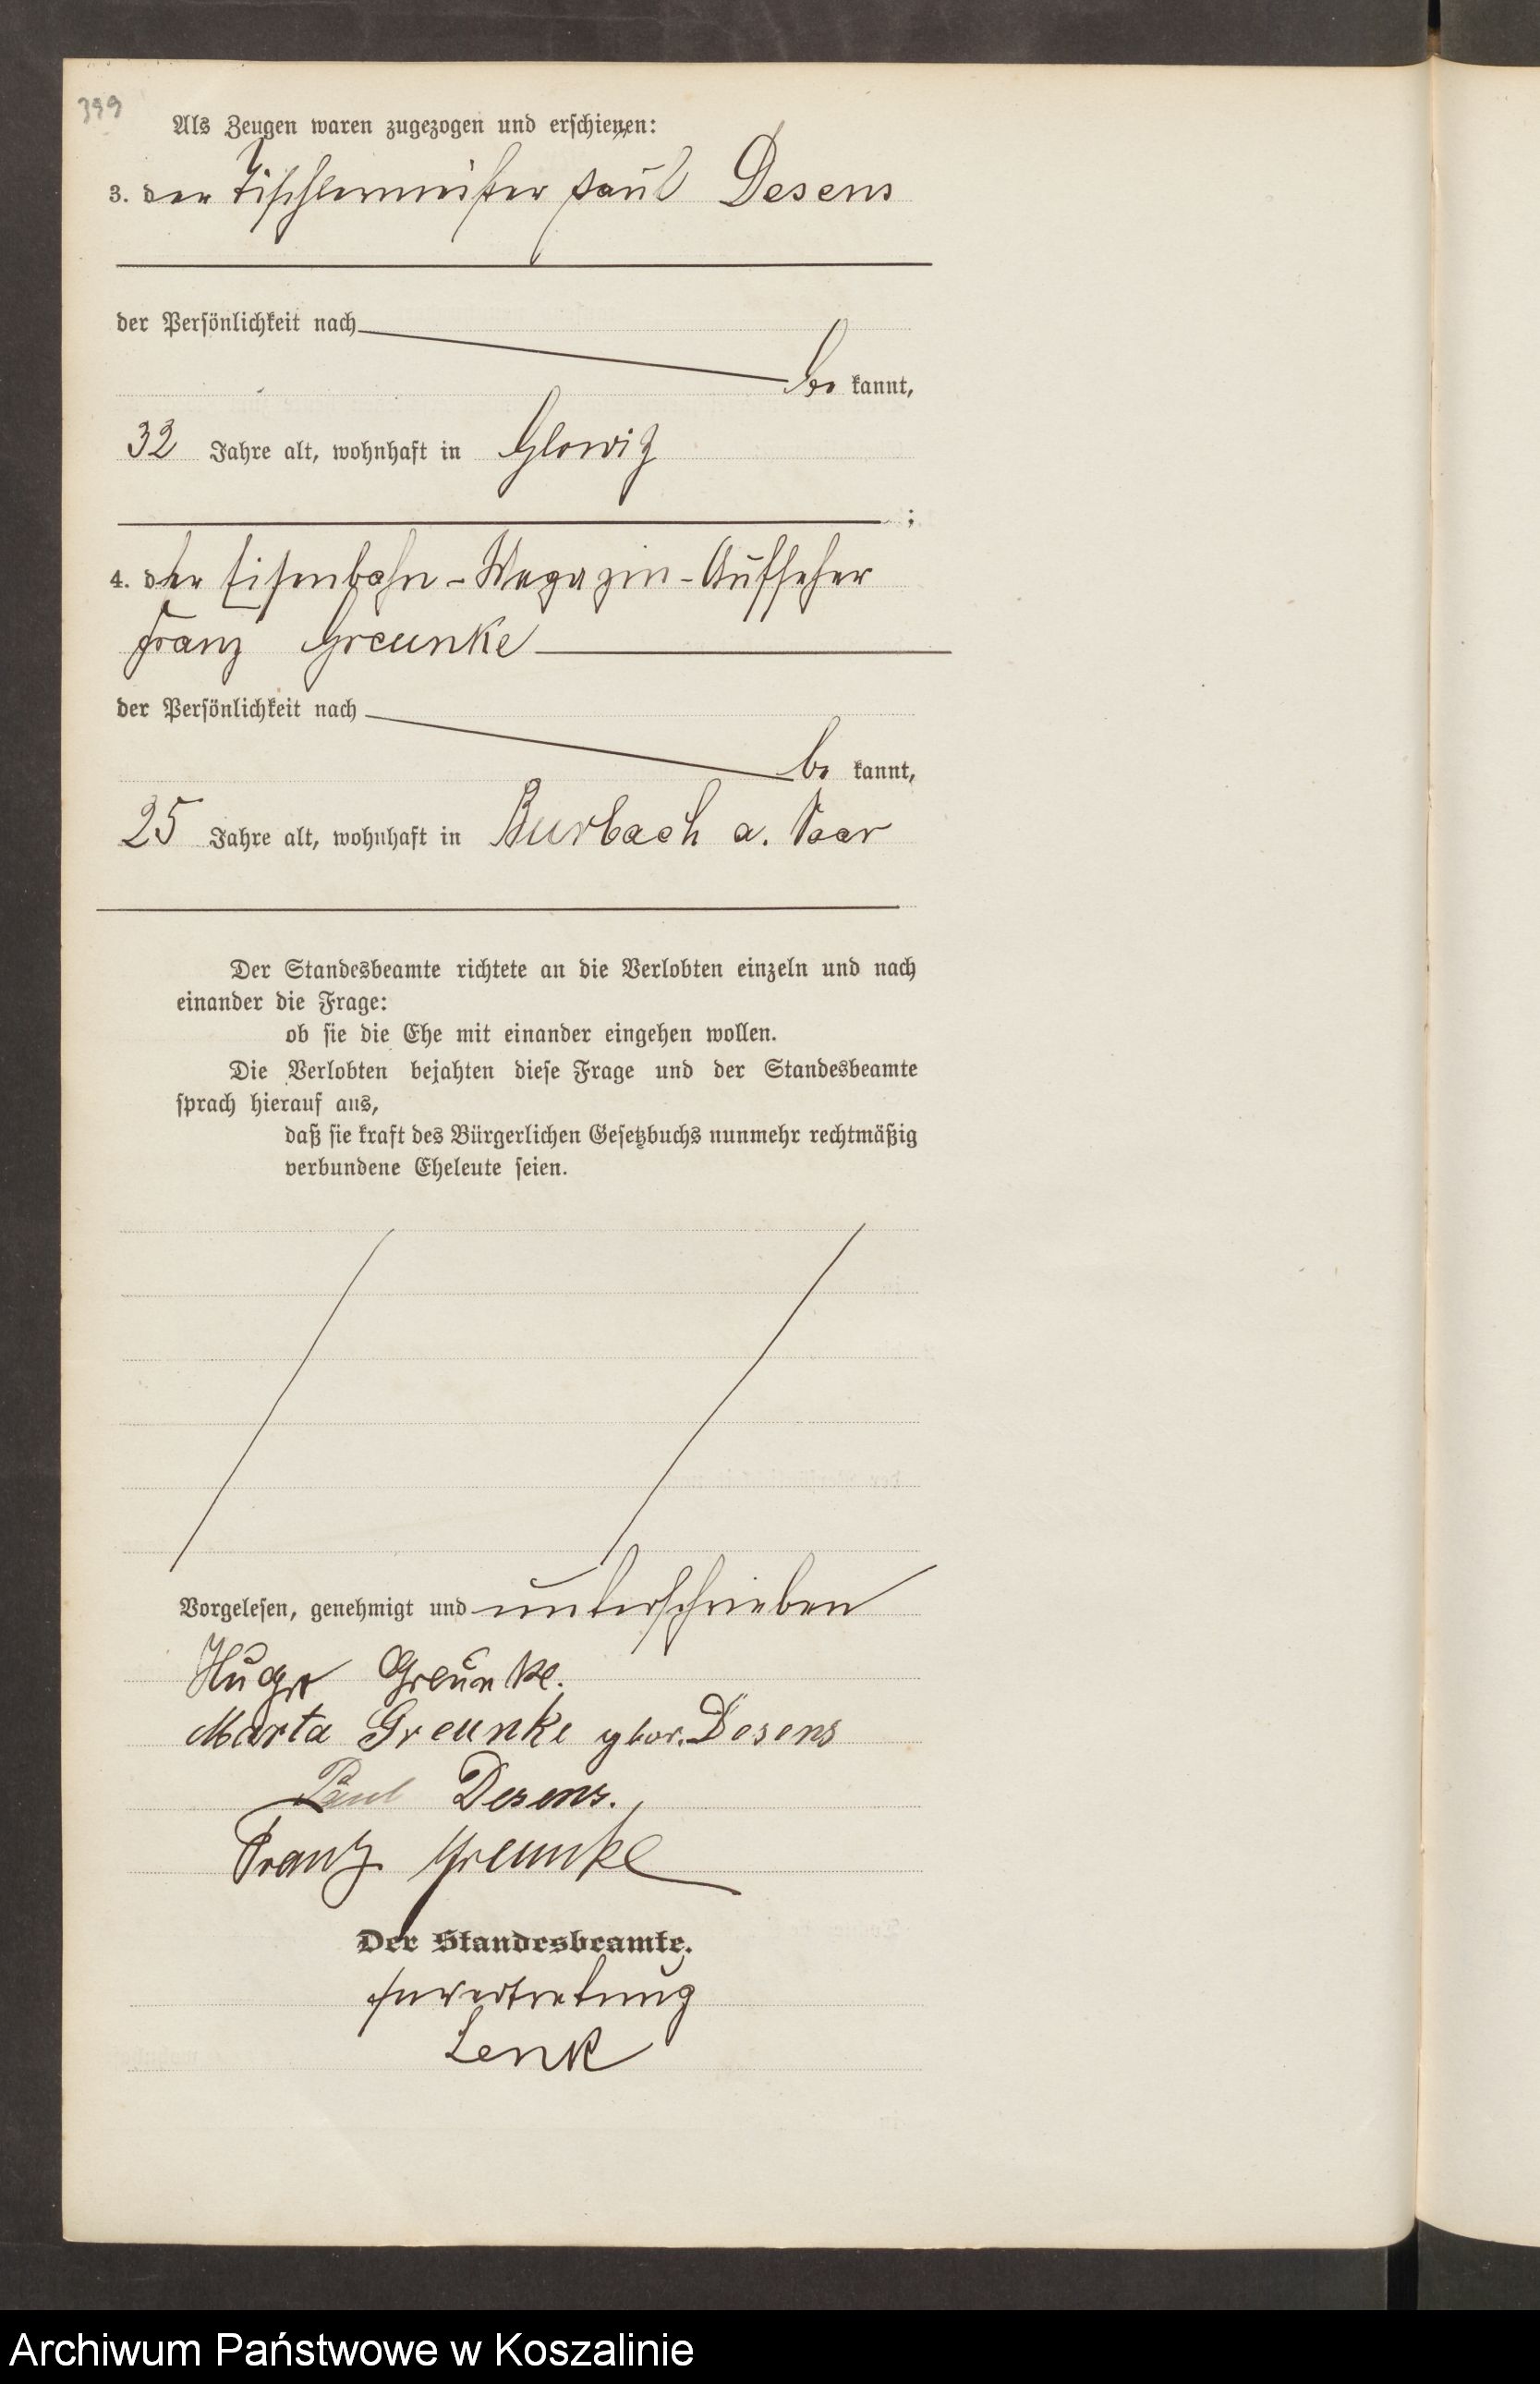 399
Als Zeugen waren zugezogen und erschienen:
3. der Tischlermeister Paul Desens
der Persönlichkeit nach
be kannt,
32 Jahre alt, wohnhaft in Glowitz
;
4. der Eisenbahn-Magazin-Aufseher
Franz Greunke
der Persönlichkeit nach
be kannt,
25 Jahre alt, wohnhaft in Burbach a. Saar
Der Standesbeamte richtete an die Verlobten einzeln und nach
einander die Frage:
ob sie die Ehe mit einander eingehen wollen.
Die Verlobten bejahten diese Frage und der Standesbeamte
sprach hierauf aus,
daß sie kraft des Bürgerlichen Gesetzbuchs nunmehr rechtmäßig
verbundene Eheleute seien.
Vorgelesen, genehmigt und unterschrieben
Hugo Greunke.
Marta Greunke gbor. Desens
Paul Desens.
Franz Greunke
Der Standesbeamte.
In Vertretung
Lenk
Archiwum Państwowe w Koszalinie